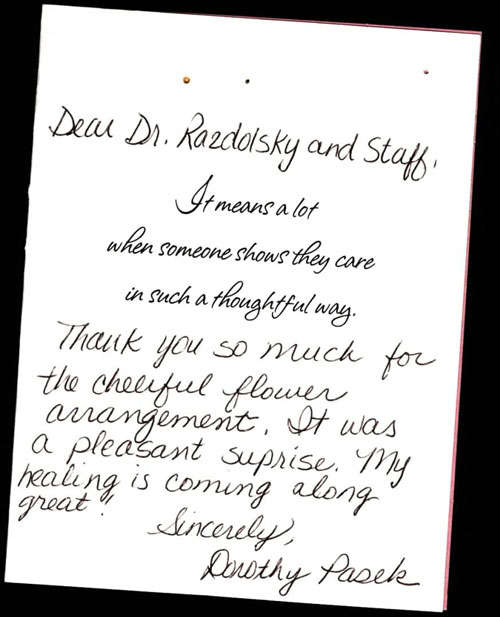 Dear Dr. Razdolsky and Staff,
It means a lot
when someone shows they care
in such a thoughtful way.
Thank you so much for
the cheerful flower
arrangement. It was
a pleasant suprise. My
healing is coming along
great!
Sincerely,
Dorothy Pasek